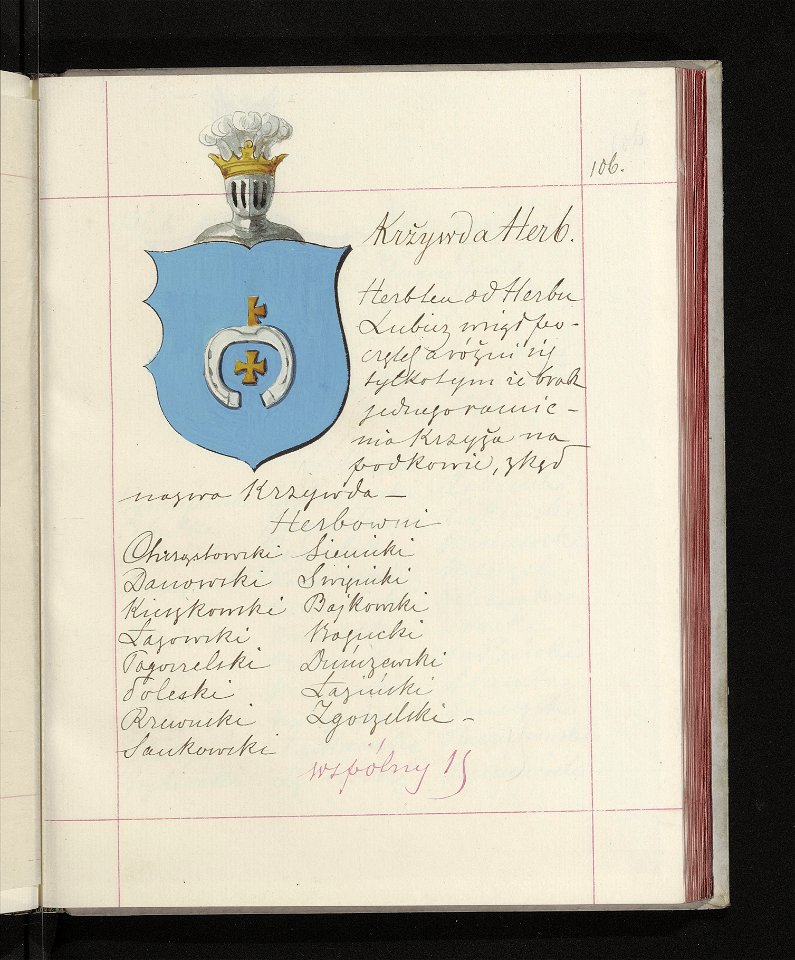 106.
Krżywda Herb.
Herb ten od Herbu
Lubicz wziął po-
czątek a różni się
tylko tym że brak
jednego ramie-
nia Krzyża na
podkowie, zkąd
nazwa Krzywda —
Herbowni
Chrząstowski Sienicki
Danowski Swięcicki
Kieszkowski Bajkowski
Łazowski Bogucki
Pogorzelski Duniszewski
Poleski Łaziński
Rzewuski Zgorzelski —
Sankowski
wspólny 15